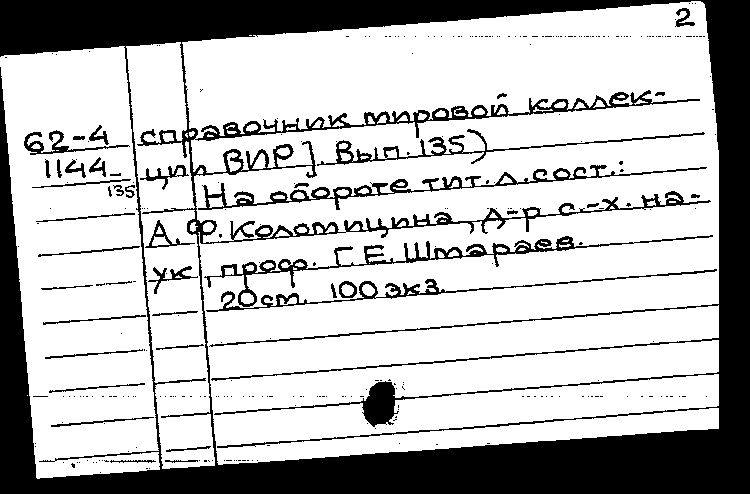 2
62-4 справочник мировой коллек-
1144- ции ВИР]. Вып. 135)
135 На обороте тит. л. сост.:
А.Ф. Коломицина, д-р с.-х. на-
ук, проф. Г.Е. Шмараев.
20 ст. 100 экз.